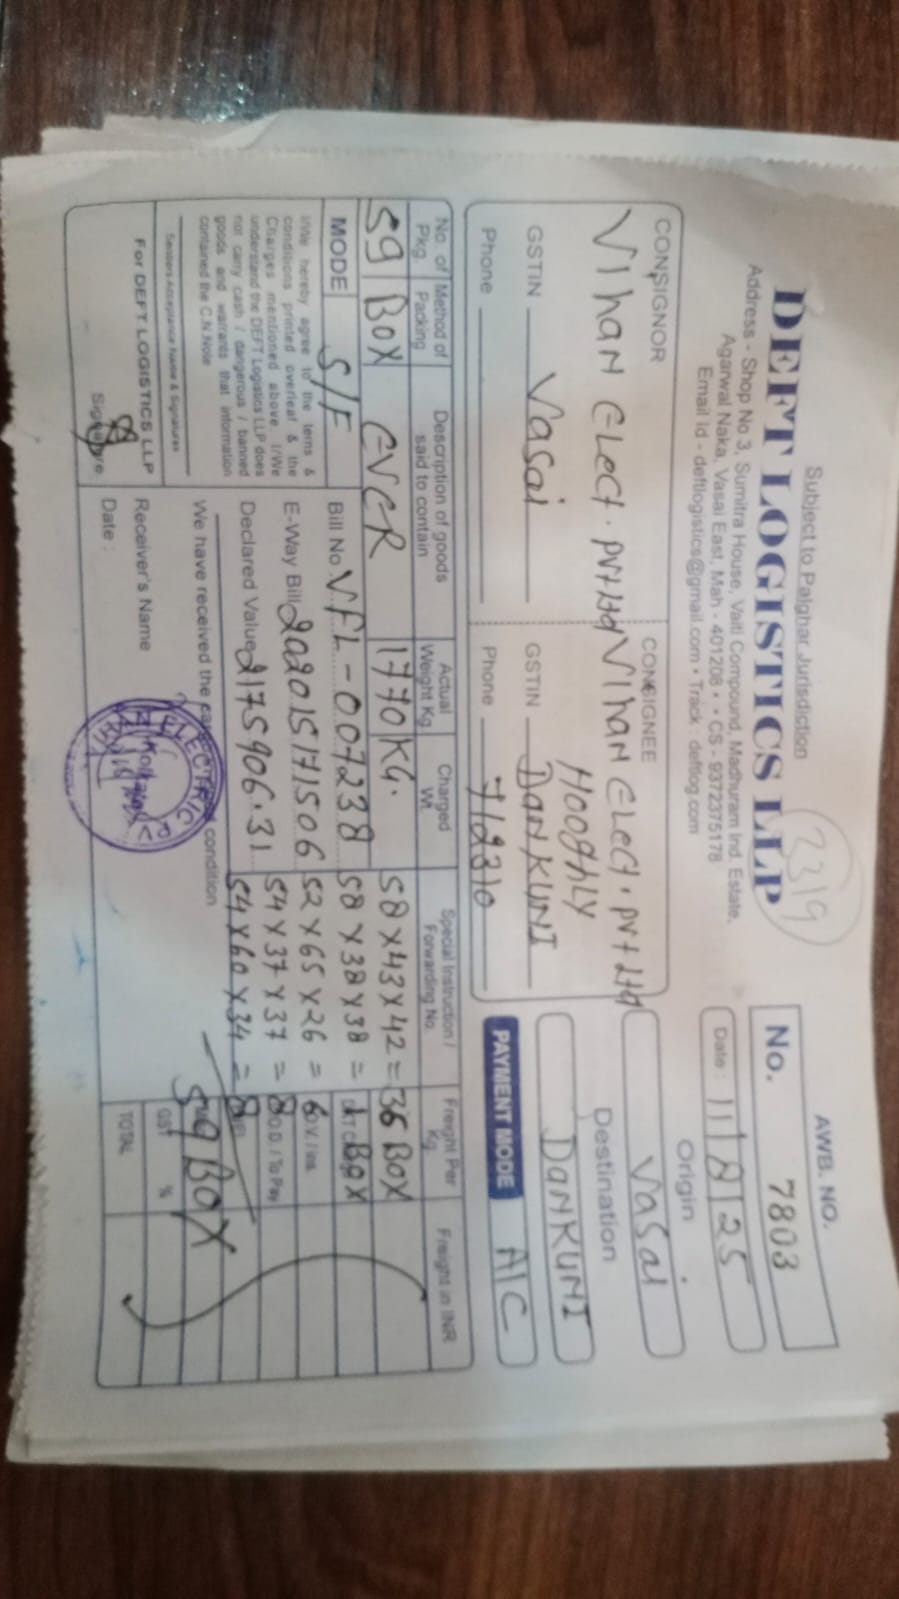 Subject to Palghar Jurisdiction
DEFT LOGISTICS LLP
2319
Address - Shop No 3, Sumitra House, Vaiti Compound, Madhuram Ind. Estate,
Agarwal Naka, Vasai East, Mah - 401208 • • CS - 9372375178
Email Id - deftlogistics@gmail.com • Track : deftlog.com
AWB. NO.
No. 7803
Date : 11/8/25
CONSIGNOR
Vihan Elect. Pvt Ltd
GSTIN Vasai
Phone
CONSIGNEE
Vihan Elect. Pvt Ltd
Hooghly
GSTIN DANKUNI
Phone 712310
Origin
Vasai
Destination
DANKUNI
PAYMENT MODE A/C
No. of Pkg. Method of Packing Description of goods said to contain Actual Weight Kg. Charged Wt. Special Instruction / Forwarding No. Freight Per Kg. Freight in INR
59 Box EVCR 1770 KG.
58 x 43 x 42 = 36 Box
58 x 38 x 38 = 1 Box
52 x 65 x 26 = 6
54 x 37 x 37 = 8
54 x 60 x 34 = 8
59 Box
MODE S/F
Bill No V.FL-007238
E-Way Bill 202015171506
Declared Value 2175906.31
O.V. / Ins.
O.D. / To Pay
GST %
TOTAL
I/We hereby agree to the terns &
conditions printed overleaf & the
Charges mentioned above I/We
understand the DEFT Logistics LLP does
not carry cash / dangerous / banned
goods and warrants that information
contained the C.N Note
Senders Acceptance Name & Signatures
For DEFT LOGISTICS LLP
Signature
We have received the condition
Receiver's Name
Date :